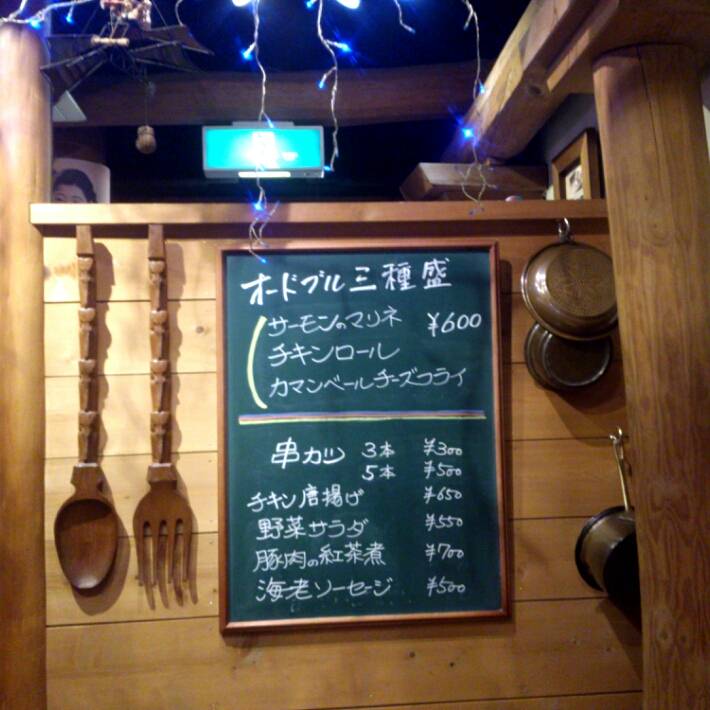 オードブル三種盛
サーモンのマリネ ¥600
チキンロール
カマンベールチーズフライ
串カツ 3本 ¥300
5本 ¥500
チキン唐揚げ ¥650
野菜サラダ ¥550
豚肉の紅茶煮 ¥700
海老ソーセージ ¥500